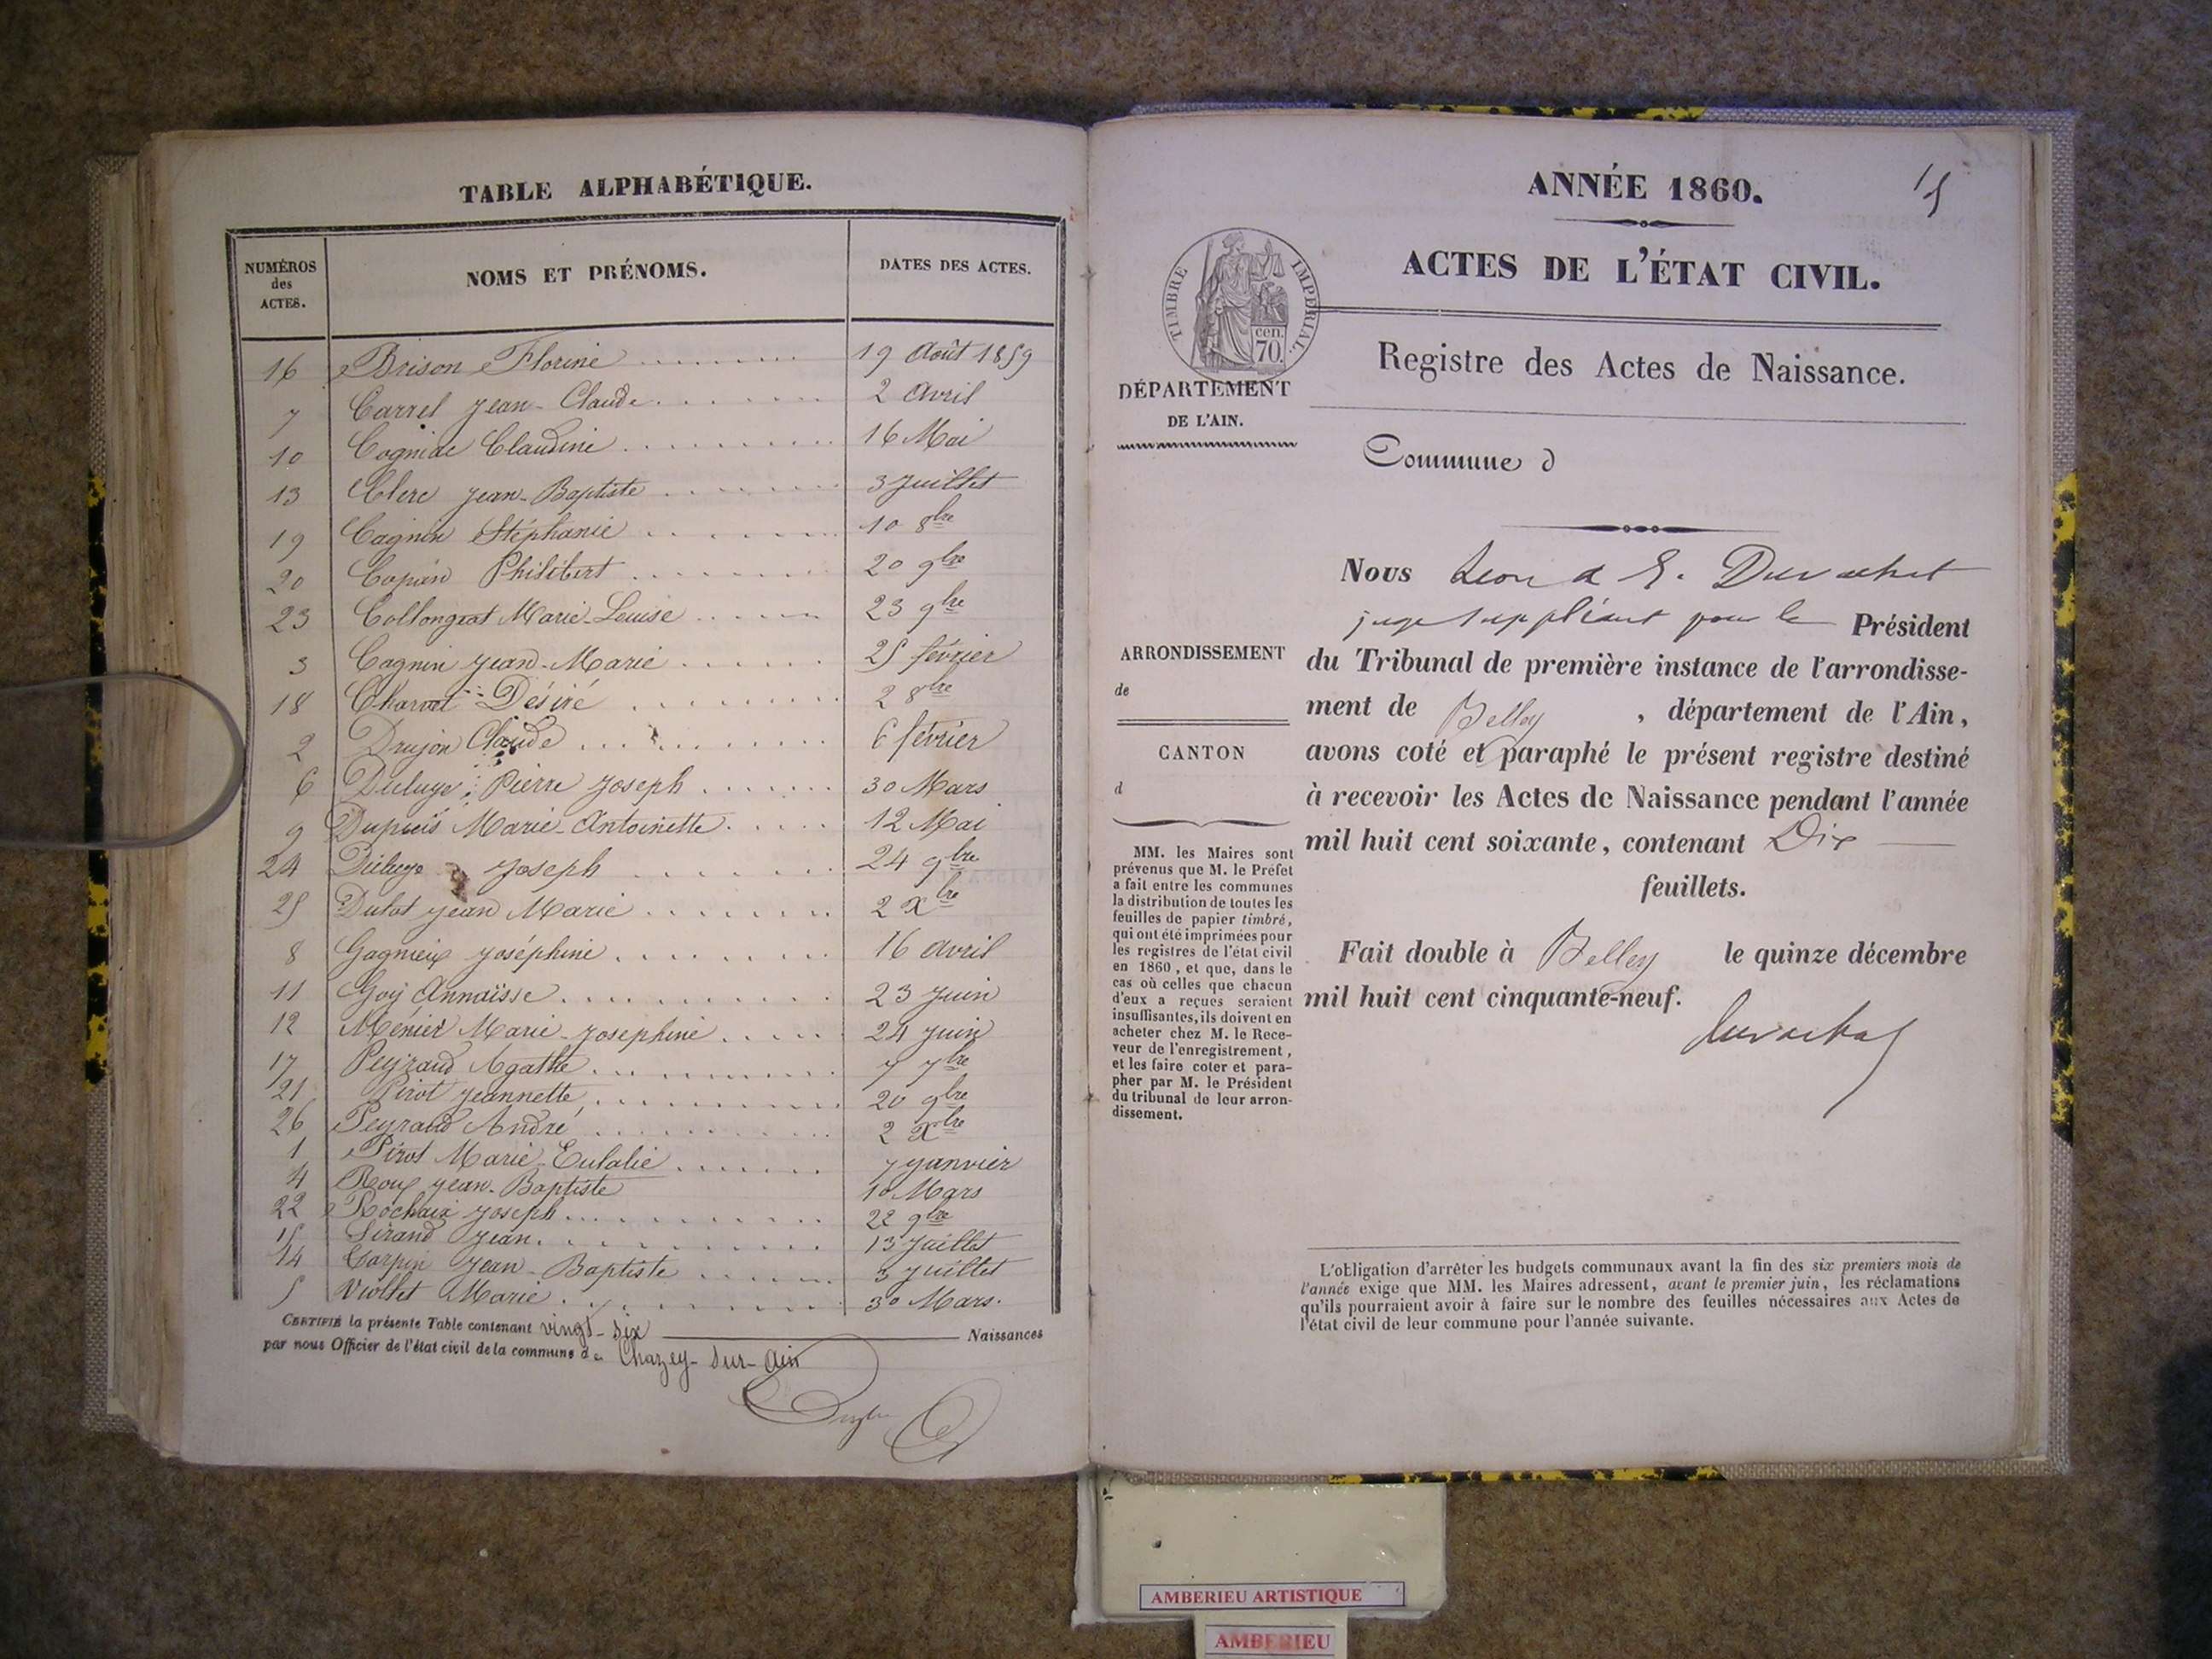 TABLE ALPHABÉTIQUE.
NUMÉROS des ACTES.
NOMS ET PRÉNOMS.
DATES DES ACTES.
16 Brison Florine 19 Août 1859
7 Carrel Jean-Claude 2 Avril
10 Claudine 16 Mai
13 Clerc Jean-Baptiste 3 Juillet
19 Cagnin Stéphanie 10 8bre
20 Philibert 20 9bre
23 Marie-Louise 23 9bre
3 Cagnin Jean-Marie 25 février
18 Charvet Désiré 2 8bre
2 Drujon Claude 6 février
6 Pierre Joseph 30 Mars
9 Dupuis Marie-Antoinette 12 Mai
24 Joseph 24 9bre
25 Jean Marie 2 Xbre
8 Gagnieux Joséphine 16 avril
11 Goÿ Annaïsse 23 Juin
12 Ménier Marie-Josephine 24 Juin
17 Peyraud Agathe 7 7bre
21 Pirot Jeannette 20 9bre
26 Peyraud André 2 Xbre
1 Pirot Marie-Eulalie 7 Janvier
4 Roux Jean-Baptiste 10 Mars
22 Rochaix Joseph 22 9bre
15 Sirand Jean 13 Juillet
14 Jean-Baptiste 3 Juillet
5 Viollet Marie 30 Mars.
CERTIFIÉ la présente Table contenant vingt-six Naissances
par nous Officier de l'état civil de la commune de Chazey-sur-Ain
15
ANNÉE 1860.
ACTES DE L'ÉTAT CIVIL.
TIMBRE IMPÉRIAL.
cen.
70.
Registre des Actes de Naissance.
DÉPARTEMENT
DE L'AIN.
Commune d
Nous
juge suppléant pour le Président
ARRONDISSEMENT
de
CANTON
d
du Tribunal de première instance de l'arrondisse-
ment de Belley , département de l'Ain,
avons coté et paraphé le présent registre destiné
à recevoir les Actes de Naissance pendant l'année
mil huit cent soixante, contenant Dix
feuillets.
Fait double à Belley le quinze décembre
mil huit cent cinquante-neuf.
MM. les Maires sont
prévenus que M. le Préfet
a fait entre les communes
la distribution de toutes les
feuilles de papier timbré,
qui ont été imprimées pour
les registres de l'état civil
en 1860, et que, dans le
cas où celles que chacun
d'eux a reçues seraient
insuffisantes, ils doivent en
acheter chez M. le Rece-
veur de l'enregistrement,
et les faire coter et para-
pher par M. le Président
du tribunal de leur arron-
dissement.
L'obligation d'arrêter les budgets communaux avant la fin des six premiers mois de
l'année exige que MM. les Maires adressent, avant le premier juin, les réclamations
qu'ils pourraient avoir à faire sur le nombre des feuilles nécessaires aux Actes de
l'état civil de leur commune pour l'année suivante.
AMBERIEU ARTISTIQUE
AMBERIEU